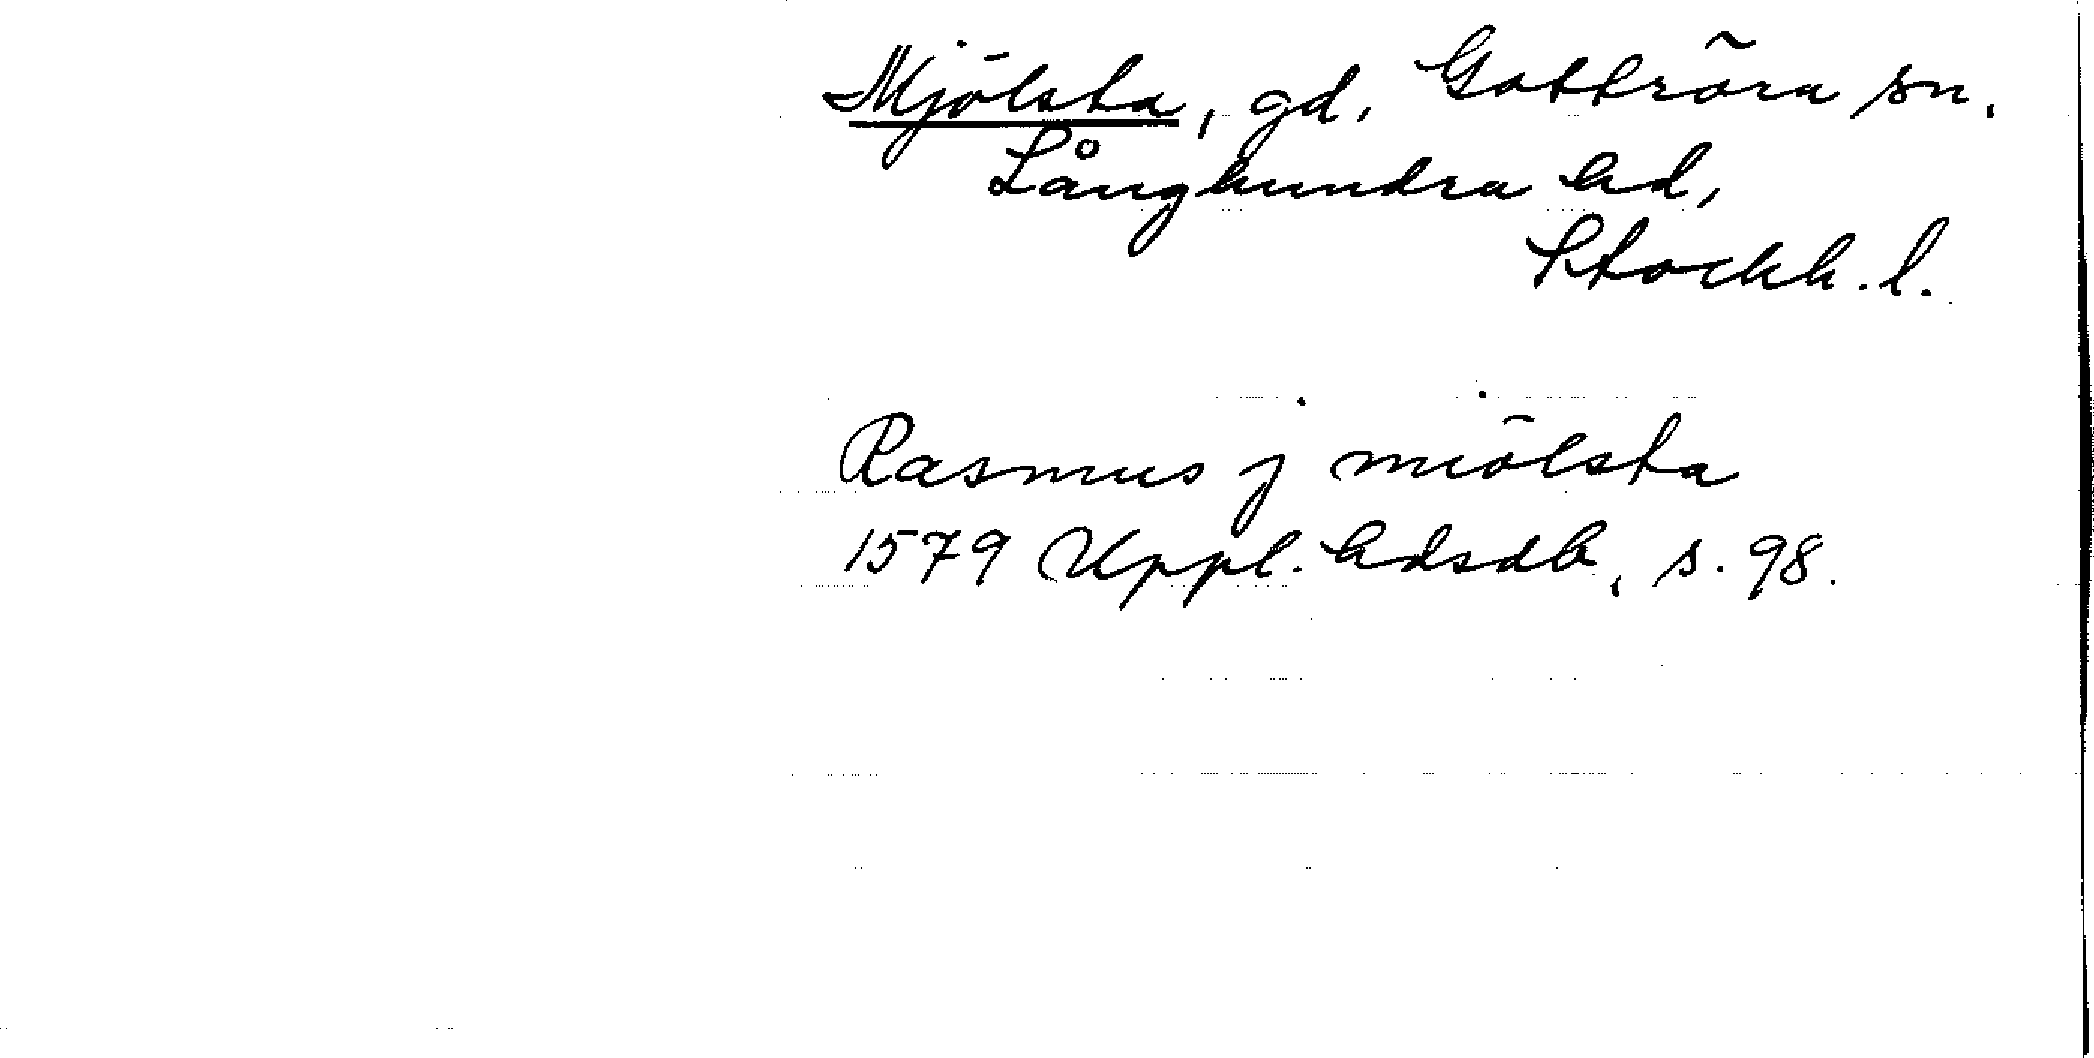 Mjölsta, gd, Gottröra sn.
Långhundra hd,
Stockh. l.
Rasmus j miölsta
1579 Uppl. hdsdb, s. 98.